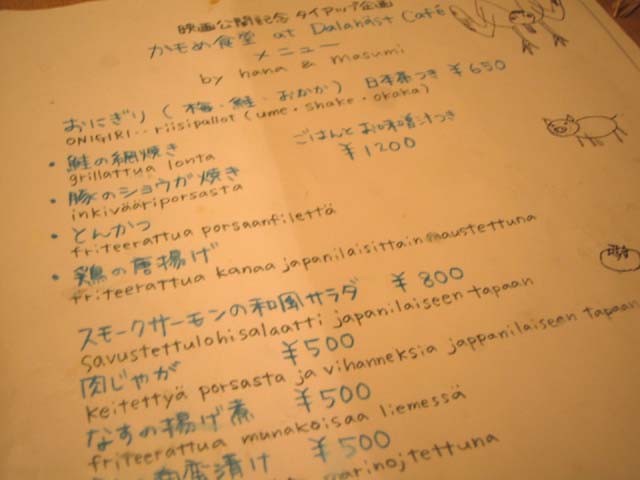 映画公開記念 タイアップ企画
かもめ食堂 at Dalahäst Café
メニュー
by hana & masumi
おにぎり (梅・鮭・おかか) 日本茶つき ¥650
ONIGIRI・・riisipallot (ume・shake・okaka)
・鮭の網焼き ごはんとお味噌汁つき
grillattua lonta ¥1200
・豚のショウガ焼き
inkivääriporsasta
・とんかつ
friteerattua porsaanfilettä
・鶏の唐揚げ
friteerattua kanaa japanilaisittain maustettuna
スモークサーモンの和風サラダ ¥800
savustettulohisalaatti japanilaiseen tapaan
肉じゃが ¥500
keitettyä porsasta ja vihanneksia jappanilaiseen tapaan
なすの揚げ煮 ¥500
friteerattua munakoisaa liemessä
漬け ¥500
marinojtettuna